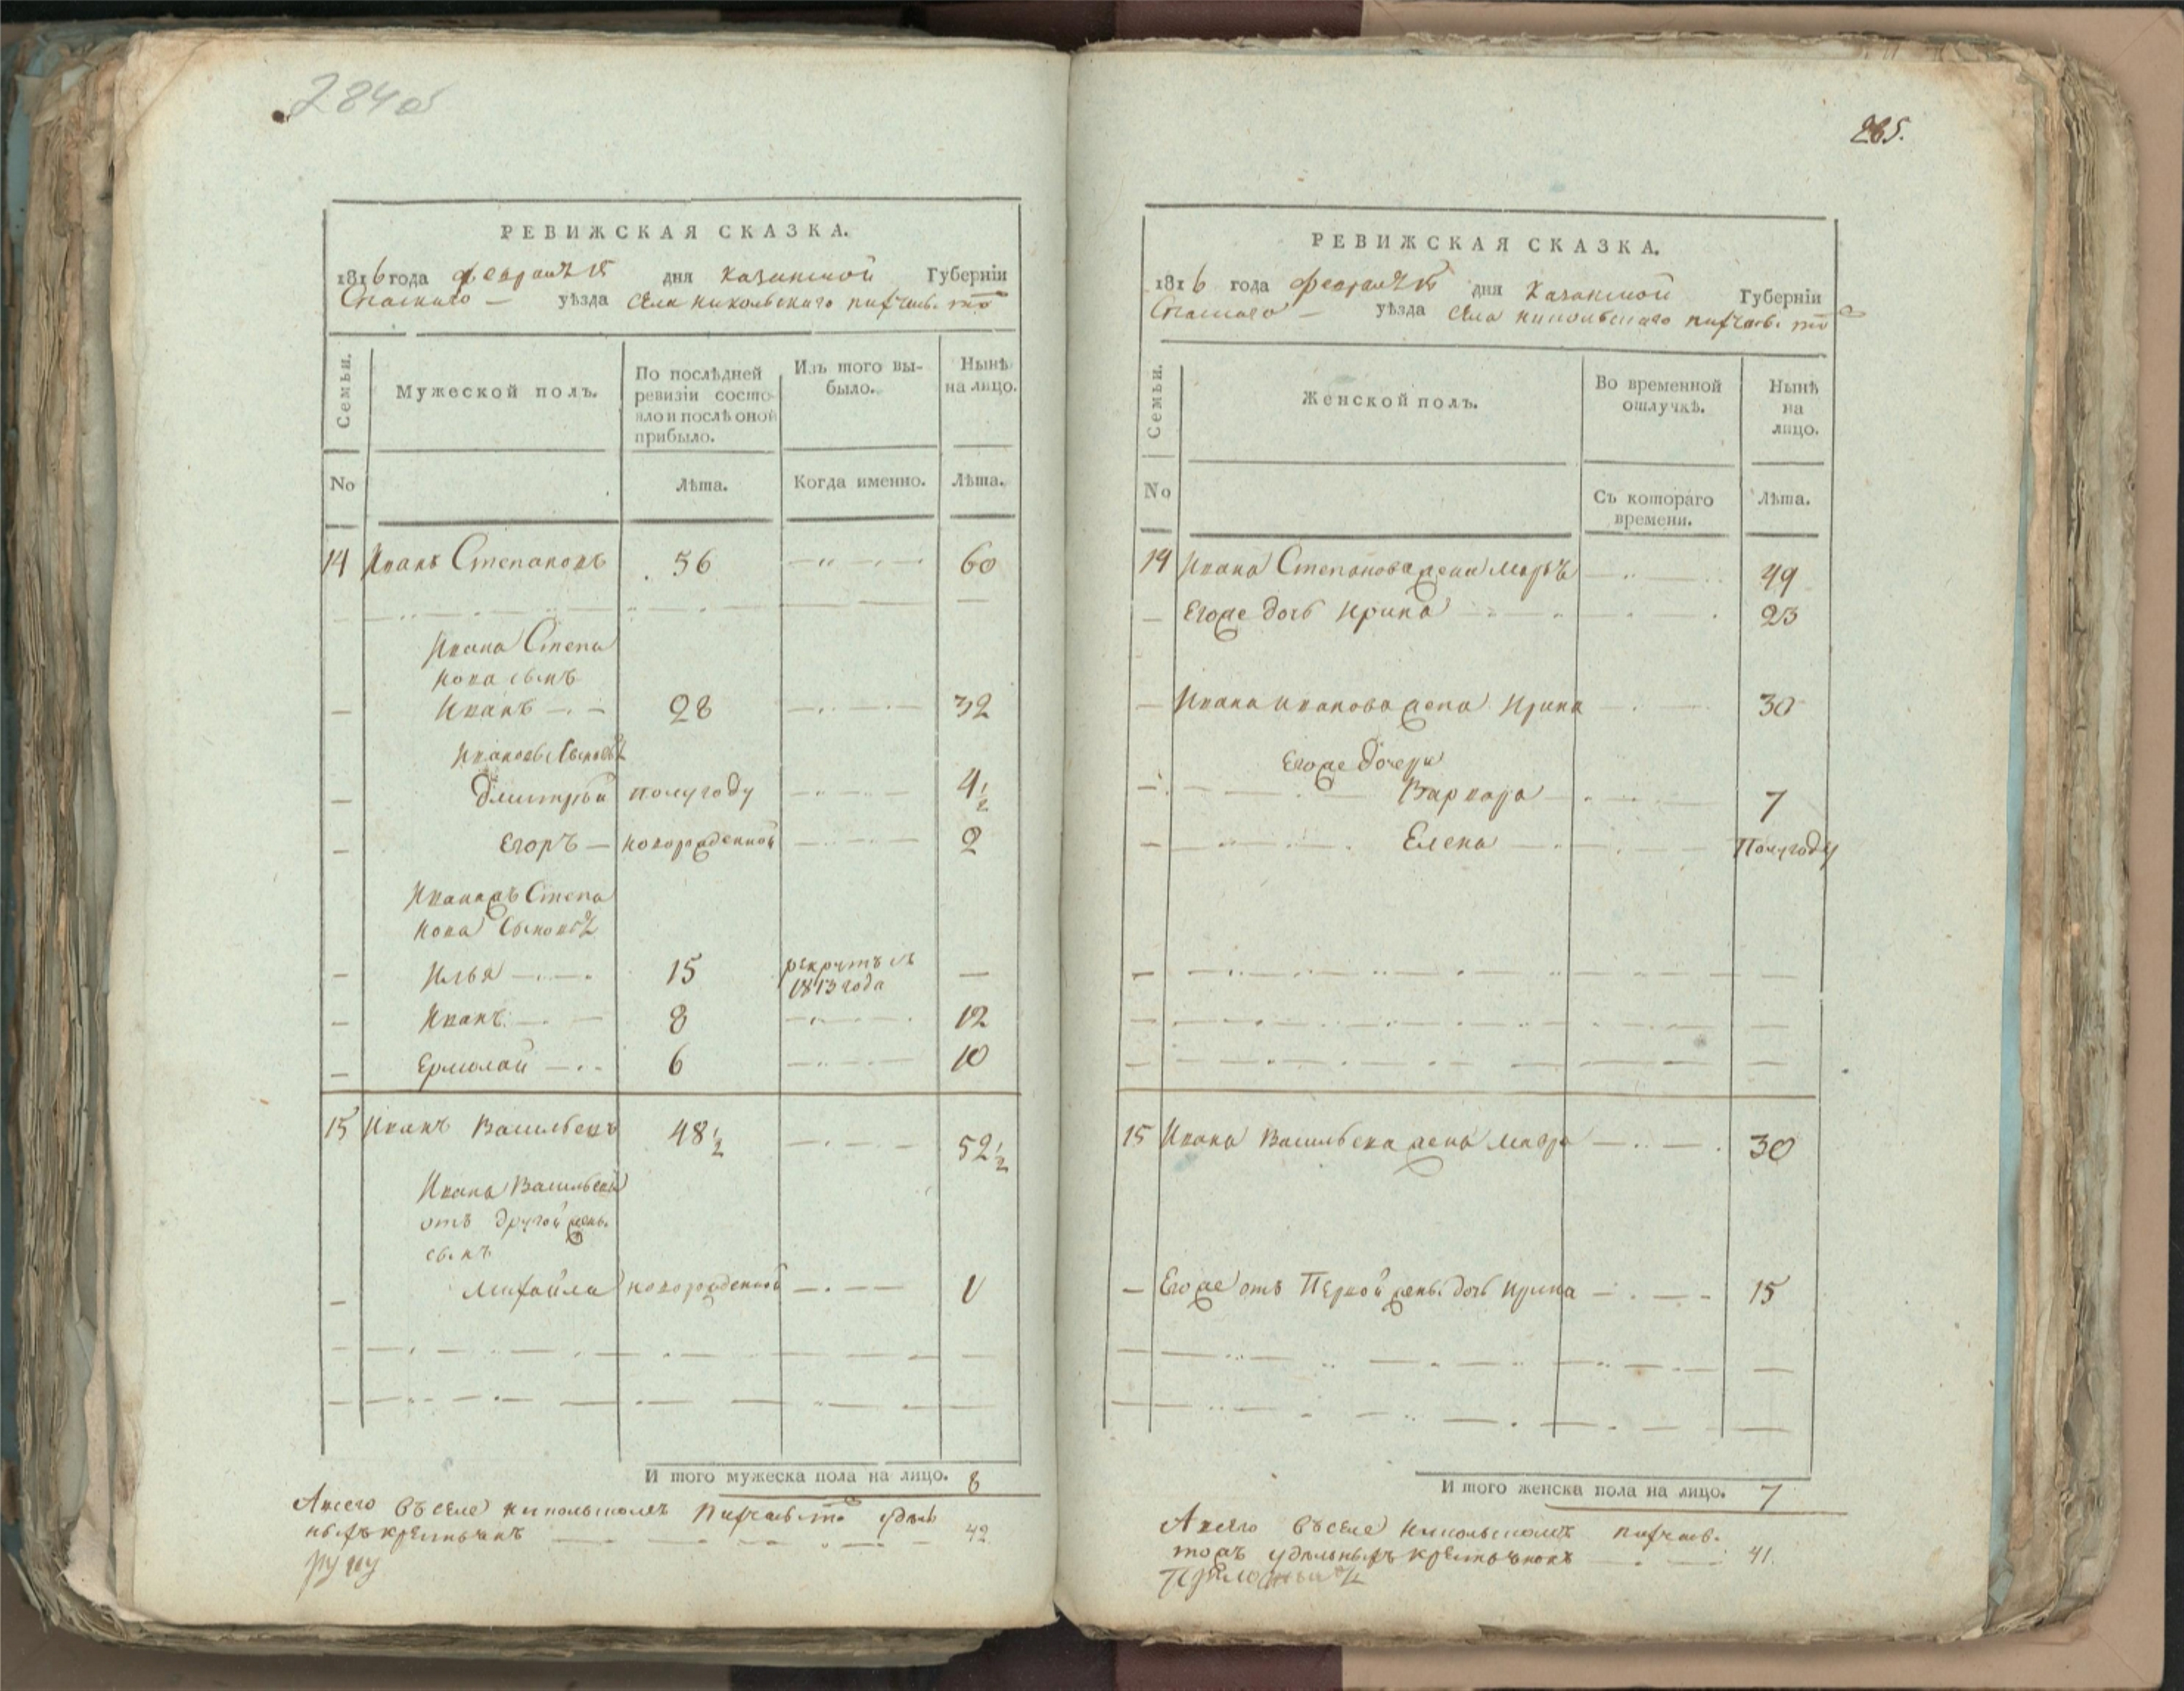 284 об
РЕВИЖСКАЯ СКАЗКА.
1816 года февраля дня Казанской Губерніи
Спаскаго — уѣзда села никольскаго
Семьи.
Мужеской полъ.
По послѣдней ревизіи состояло и послѣ оной прибыло.
Изъ того выбыло.
Нынѣ на лицо.
No
Лѣта.
Когда именно.
Лѣта.
14 Иванъ Степановъ 56 60
Ивана Степа
нова сынъ
Иванъ 28 32
Ивановы Сыновья
Дмитрїй полугоду 4 1/2
Егоръ — новорожденной 2
Иванажъ Степа
нова Сыновья
Илья 15 рекрутъ съ 1813 года —
Иванъ 8 12
Ермолай 6 10
15 Иванъ Васильевъ 48 1/2 52 1/2
Ивана Васильева
отъ другой жены
сынъ
Михайла новорожденной 1
И того мужеска пола на лицо. 8
Авсего въ селе никольскомъ удель
ныхъ крестьянъ 42
265.
РЕВИЖСКАЯ СКАЗКА.
1816 года февраля дня Казанской Губерніи
Спаскаго — уѣзда села никольскаго
Семьи.
Женской полъ.
Во временной отлучкѣ.
Нынѣ на лицо.
No
Съ котораго времени.
Лѣта.
14 Ивана Степанова жена Марья 49
— Егоже дочь Ирина 23
— Ивана Иванова жена Ирина 30
Егоже дочери
Варвара 7
Елена Полугоду
15 Ивана Васильева жена Мавра 30
— Егоже отъ Первой жены дочь Ирина 15
И того женска пола на лицо. 7
Авсего въ селе никольскомъ
удельныхъ крестьянокъ 41.